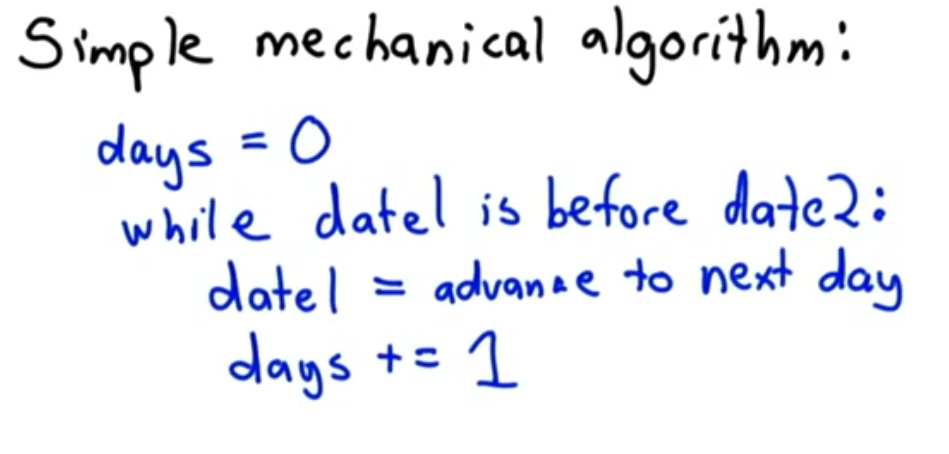 Simple mechanical algorithm:
days = 0
while date1 is before date2:
date1 = advance to next day
days += 1